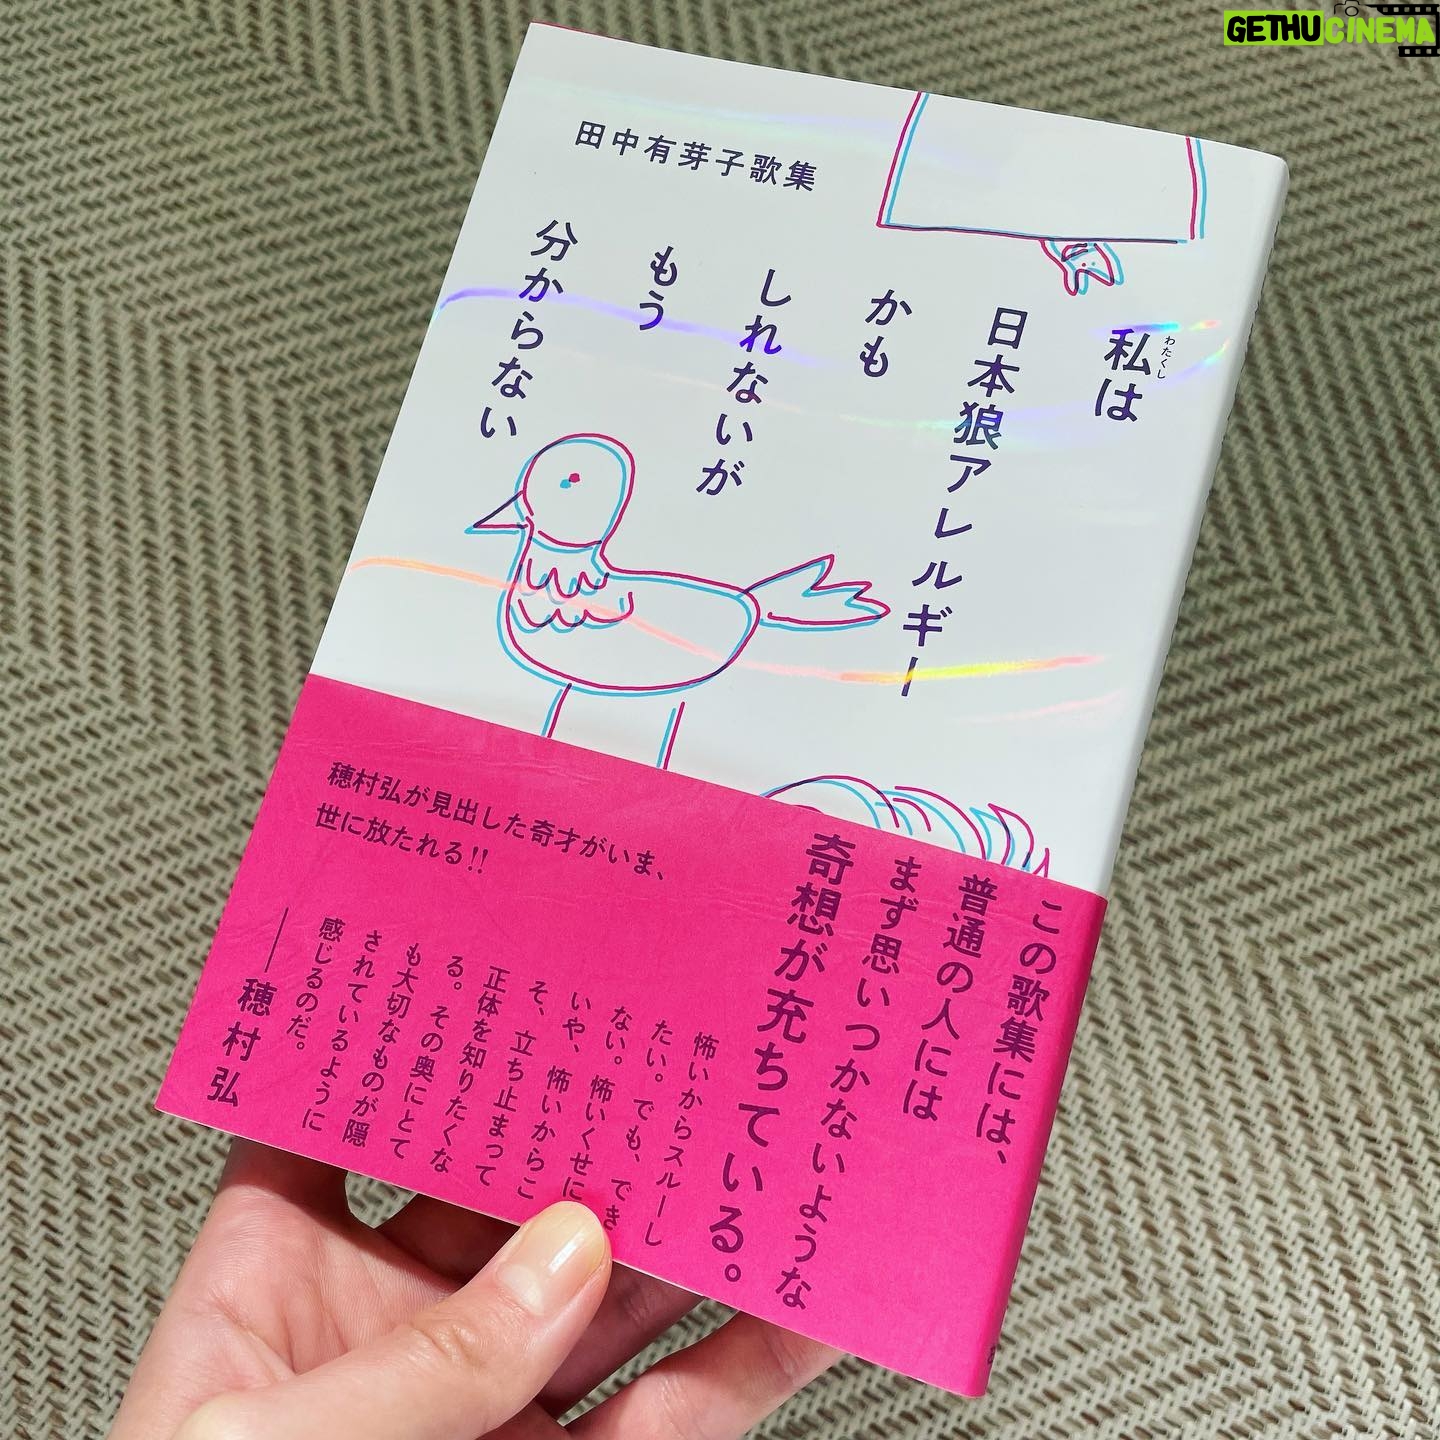 GETHUCINEMA
田中有芽子歌集
私は
わたくし
日本狼アレルギー
かも
しれないが
もう
分からない
この歌集には、
普通の人には
まず思いつかないような
奇想が充ちている。
怖いからスルーし
たい。でも、でき
ない。怖いくせに
いや、怖いからこ
そ、立ち止まって
正体を知りたくな
る。その奥にとて
も大切なものが隠
されているように
感じるのだ。
——穂村弘
穂村弘が見出した奇才がいま、
世に放たれる!!